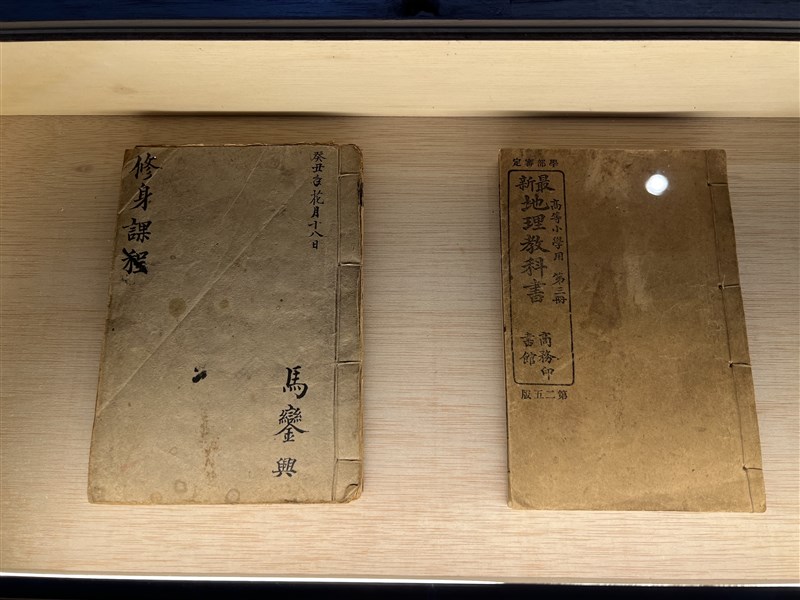 癸丑花月十八日
修身課
馬鑾興
學部審定
最新
高等小學用 第三冊
地理教科書
商務印
書館
第二五版